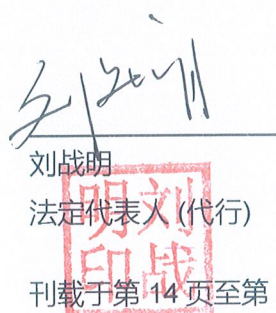 刘战明
刘战明
法定代表人 (代行)
刘战
明印
刊载于第 14 页至第